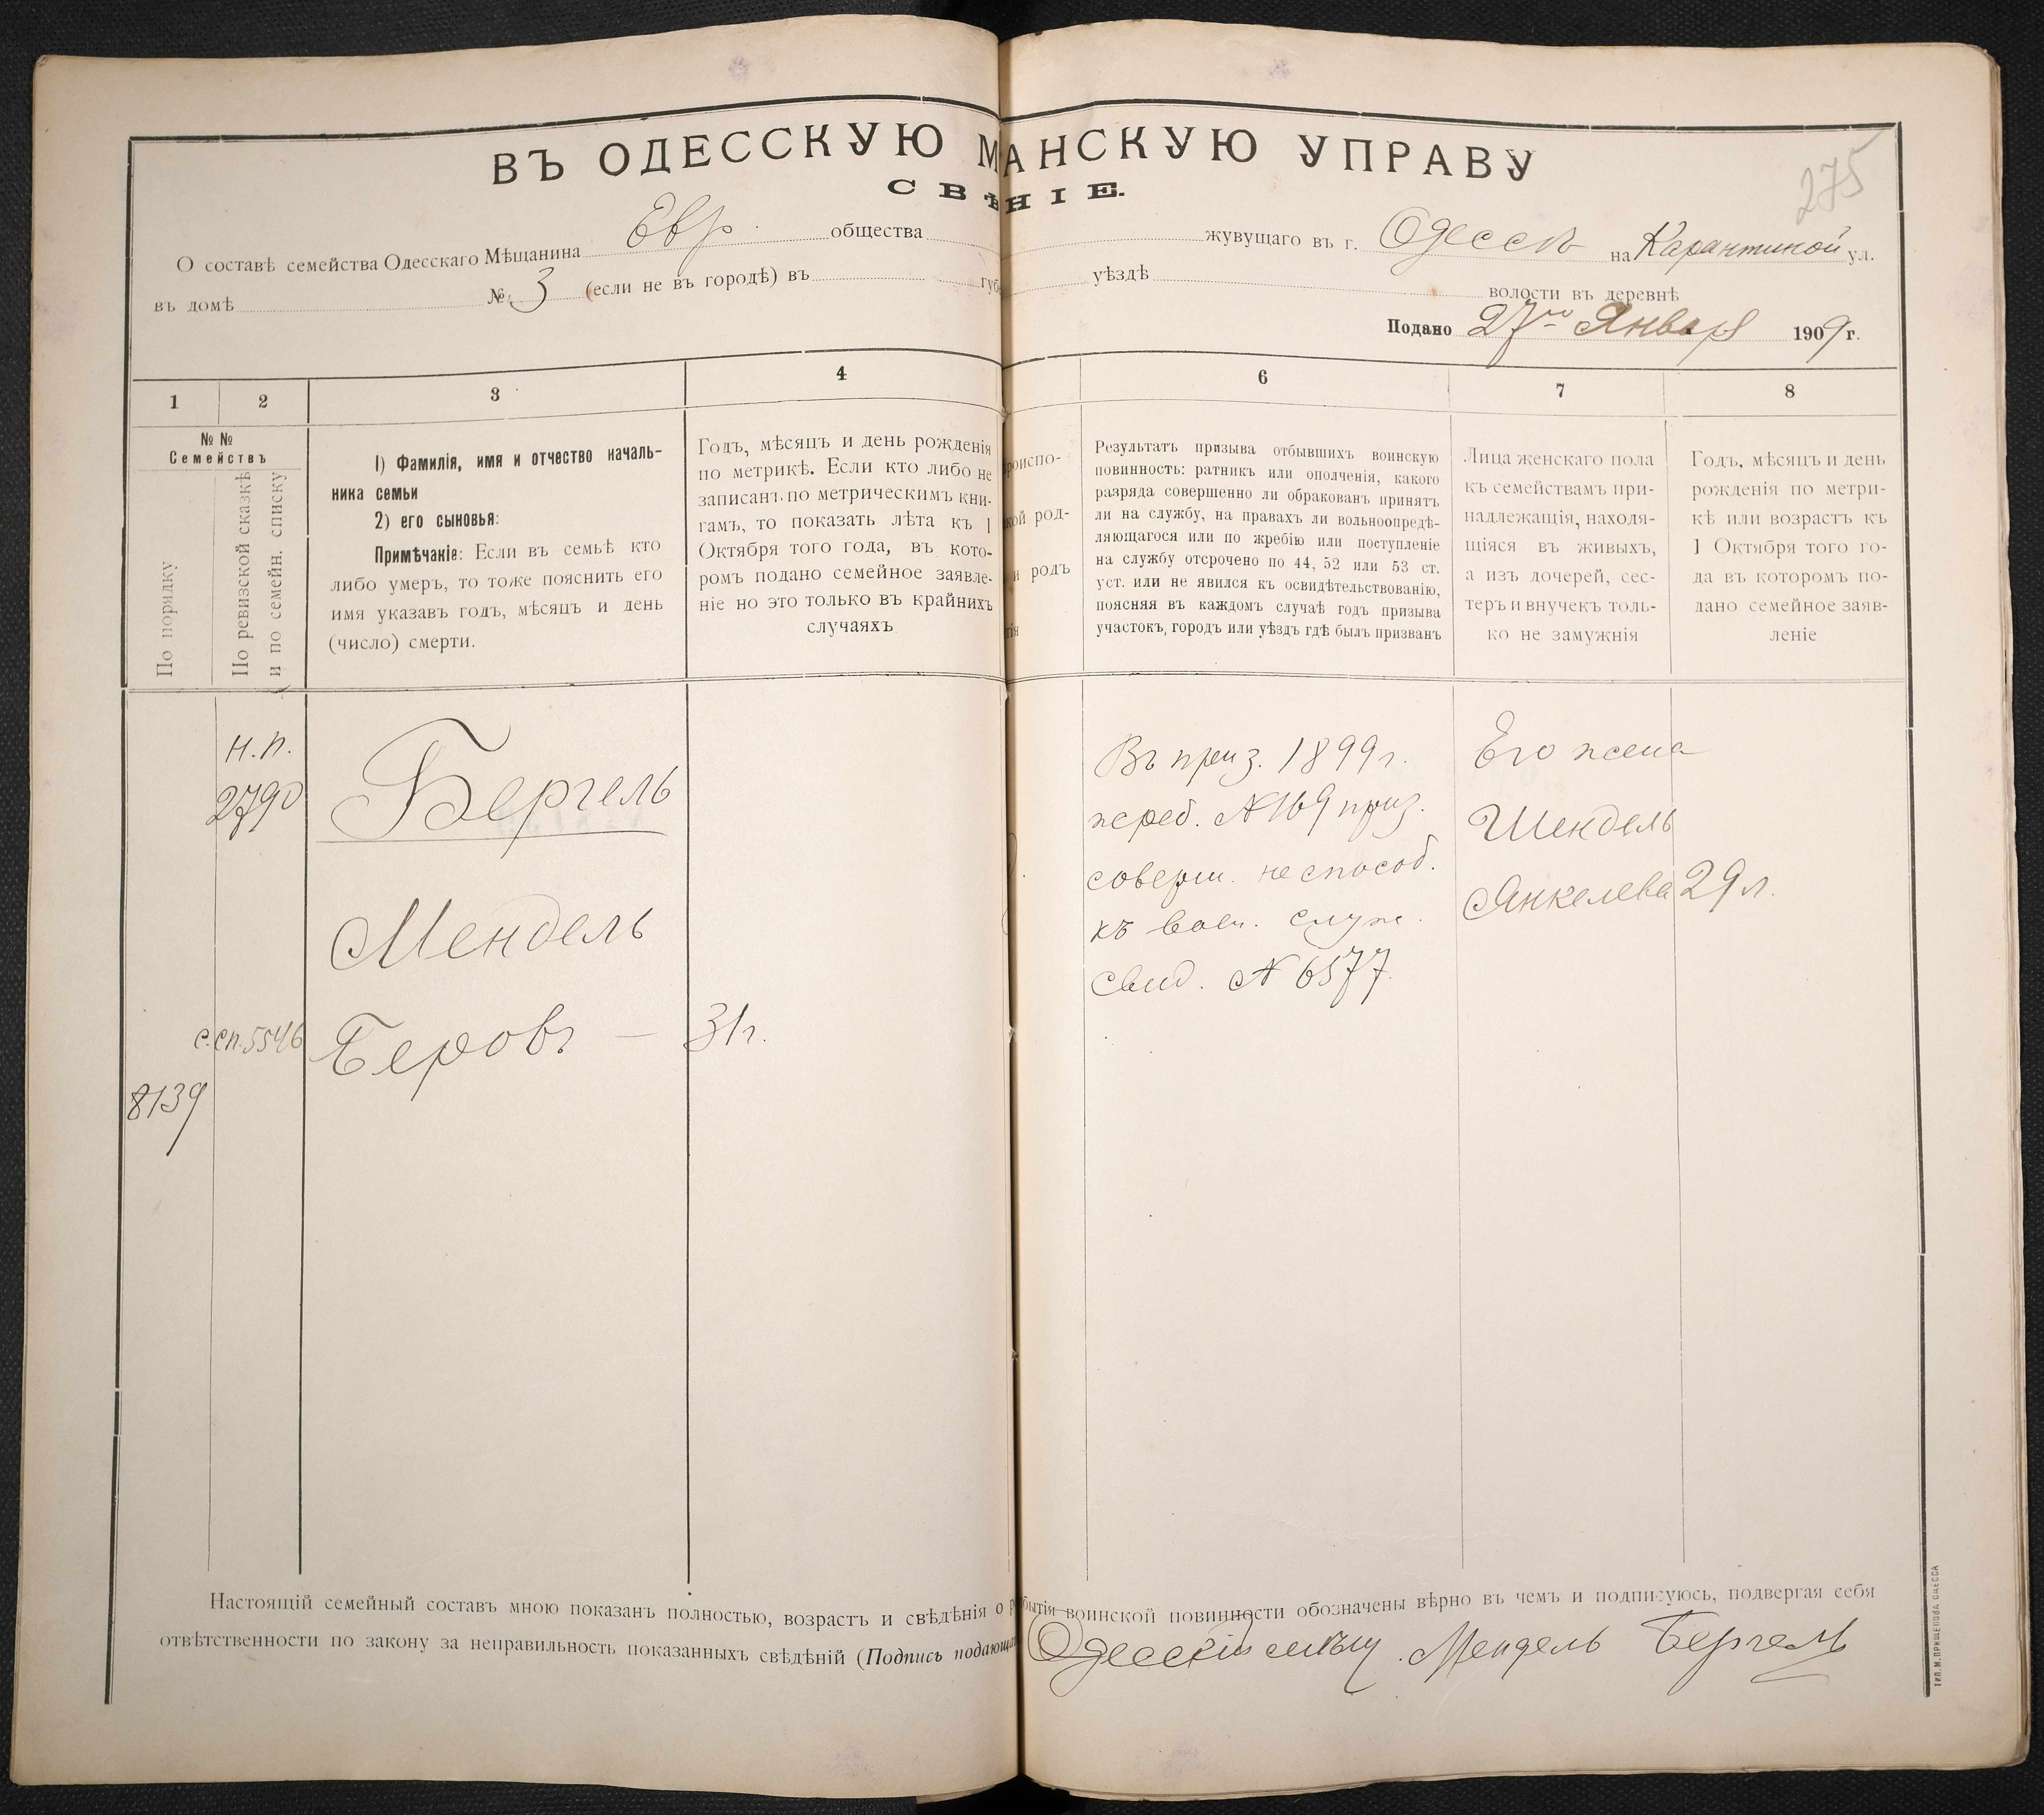 275
ВЪ ОДЕССКУЮ М АНСКУЮ УПРАВУ
СВѢ НІЕ.
О составѣ семейства Одесскаго Мѣщанина Евр. общества жувущаго въ г. Одессѣ на Карантиной ул.
въ домѣ № 3 (если не въ городѣ) въ губ уѣздѣ волости въ деревнѣ
Подано 27го Января 1909 г.
1 2 3 4 6 7 8
№ №
Семействъ
По порядку
По ревизской сказкѣ
и по семейн. списку
1) Фамилія, имя и отчество началь-
ника семьи
2) его сыновья:
Примѣчакіе: Если въ семьѣ кто
либо умеръ, то тоже пояснить его
имя указавъ годъ, мѣсяцъ и день
(число) смерти.
Годъ, мѣсяцъ и день рожденія
по метрикѣ. Если кто либо не
записанъ по метрическимъ кни-
гамъ, то показать лѣта къ 1
Октября того года, въ кото-
ромъ подано семейное заявле-
ніе но это только въ крайнихъ
случаяхъ
роиспо-
кой род-
и родъ
гія
Результатъ призыва отбывшихъ воинскую
повинность: ратникъ или ополченія, какого
разряда совершенно ли обракованъ принятъ
ли на службу, на правахъ ли вольноопредѣ-
ляющагося или по жребію или поступленіе
на службу отсрочено по 44, 52 или 53 ст.
уст. или не явился къ освидѣтельствованію,
поясняя въ каждомъ случаѣ годъ призыва
участокъ, городъ или уѣздъ гдѣ былъ призванъ
Лица женскаго пола
къ семействамъ при-
надлежащія, находя-
щіяся въ живыхъ,
а изъ дочерей, сес-
теръ и внучекъ толь-
ко не замужнія
Годъ, мѣсяцъ и день
рожденія по метри-
кѣ или возрастъ къ
1 Октября того го-
да въ которомъ по-
дано семейное заяв-
леніе
н.п.
2790
с.сп. 5546
8139
Бергель
Мендель
Беровъ — 31г.
Въ приз. 1899г.
жереб. №169 приз.
соверш. неспособ.
къ воен. служ.
свид. №6577.
Его жена
Шендель
Янкелева 29 л.
Настоящій семейный составъ мною показанъ полностью, возрастъ и свѣдѣнія о р бытія воинской повинности обозначены вѣрно въ чемъ и подписуюсь, подвергая себя
отвѣтственности по закону за неправильность показанныхъ свѣдѣній (Подпись подающа Одесскій мѣщ. Мендель Бергель
ТИП. М. ПРИЩЕПОВА ОДЕССА